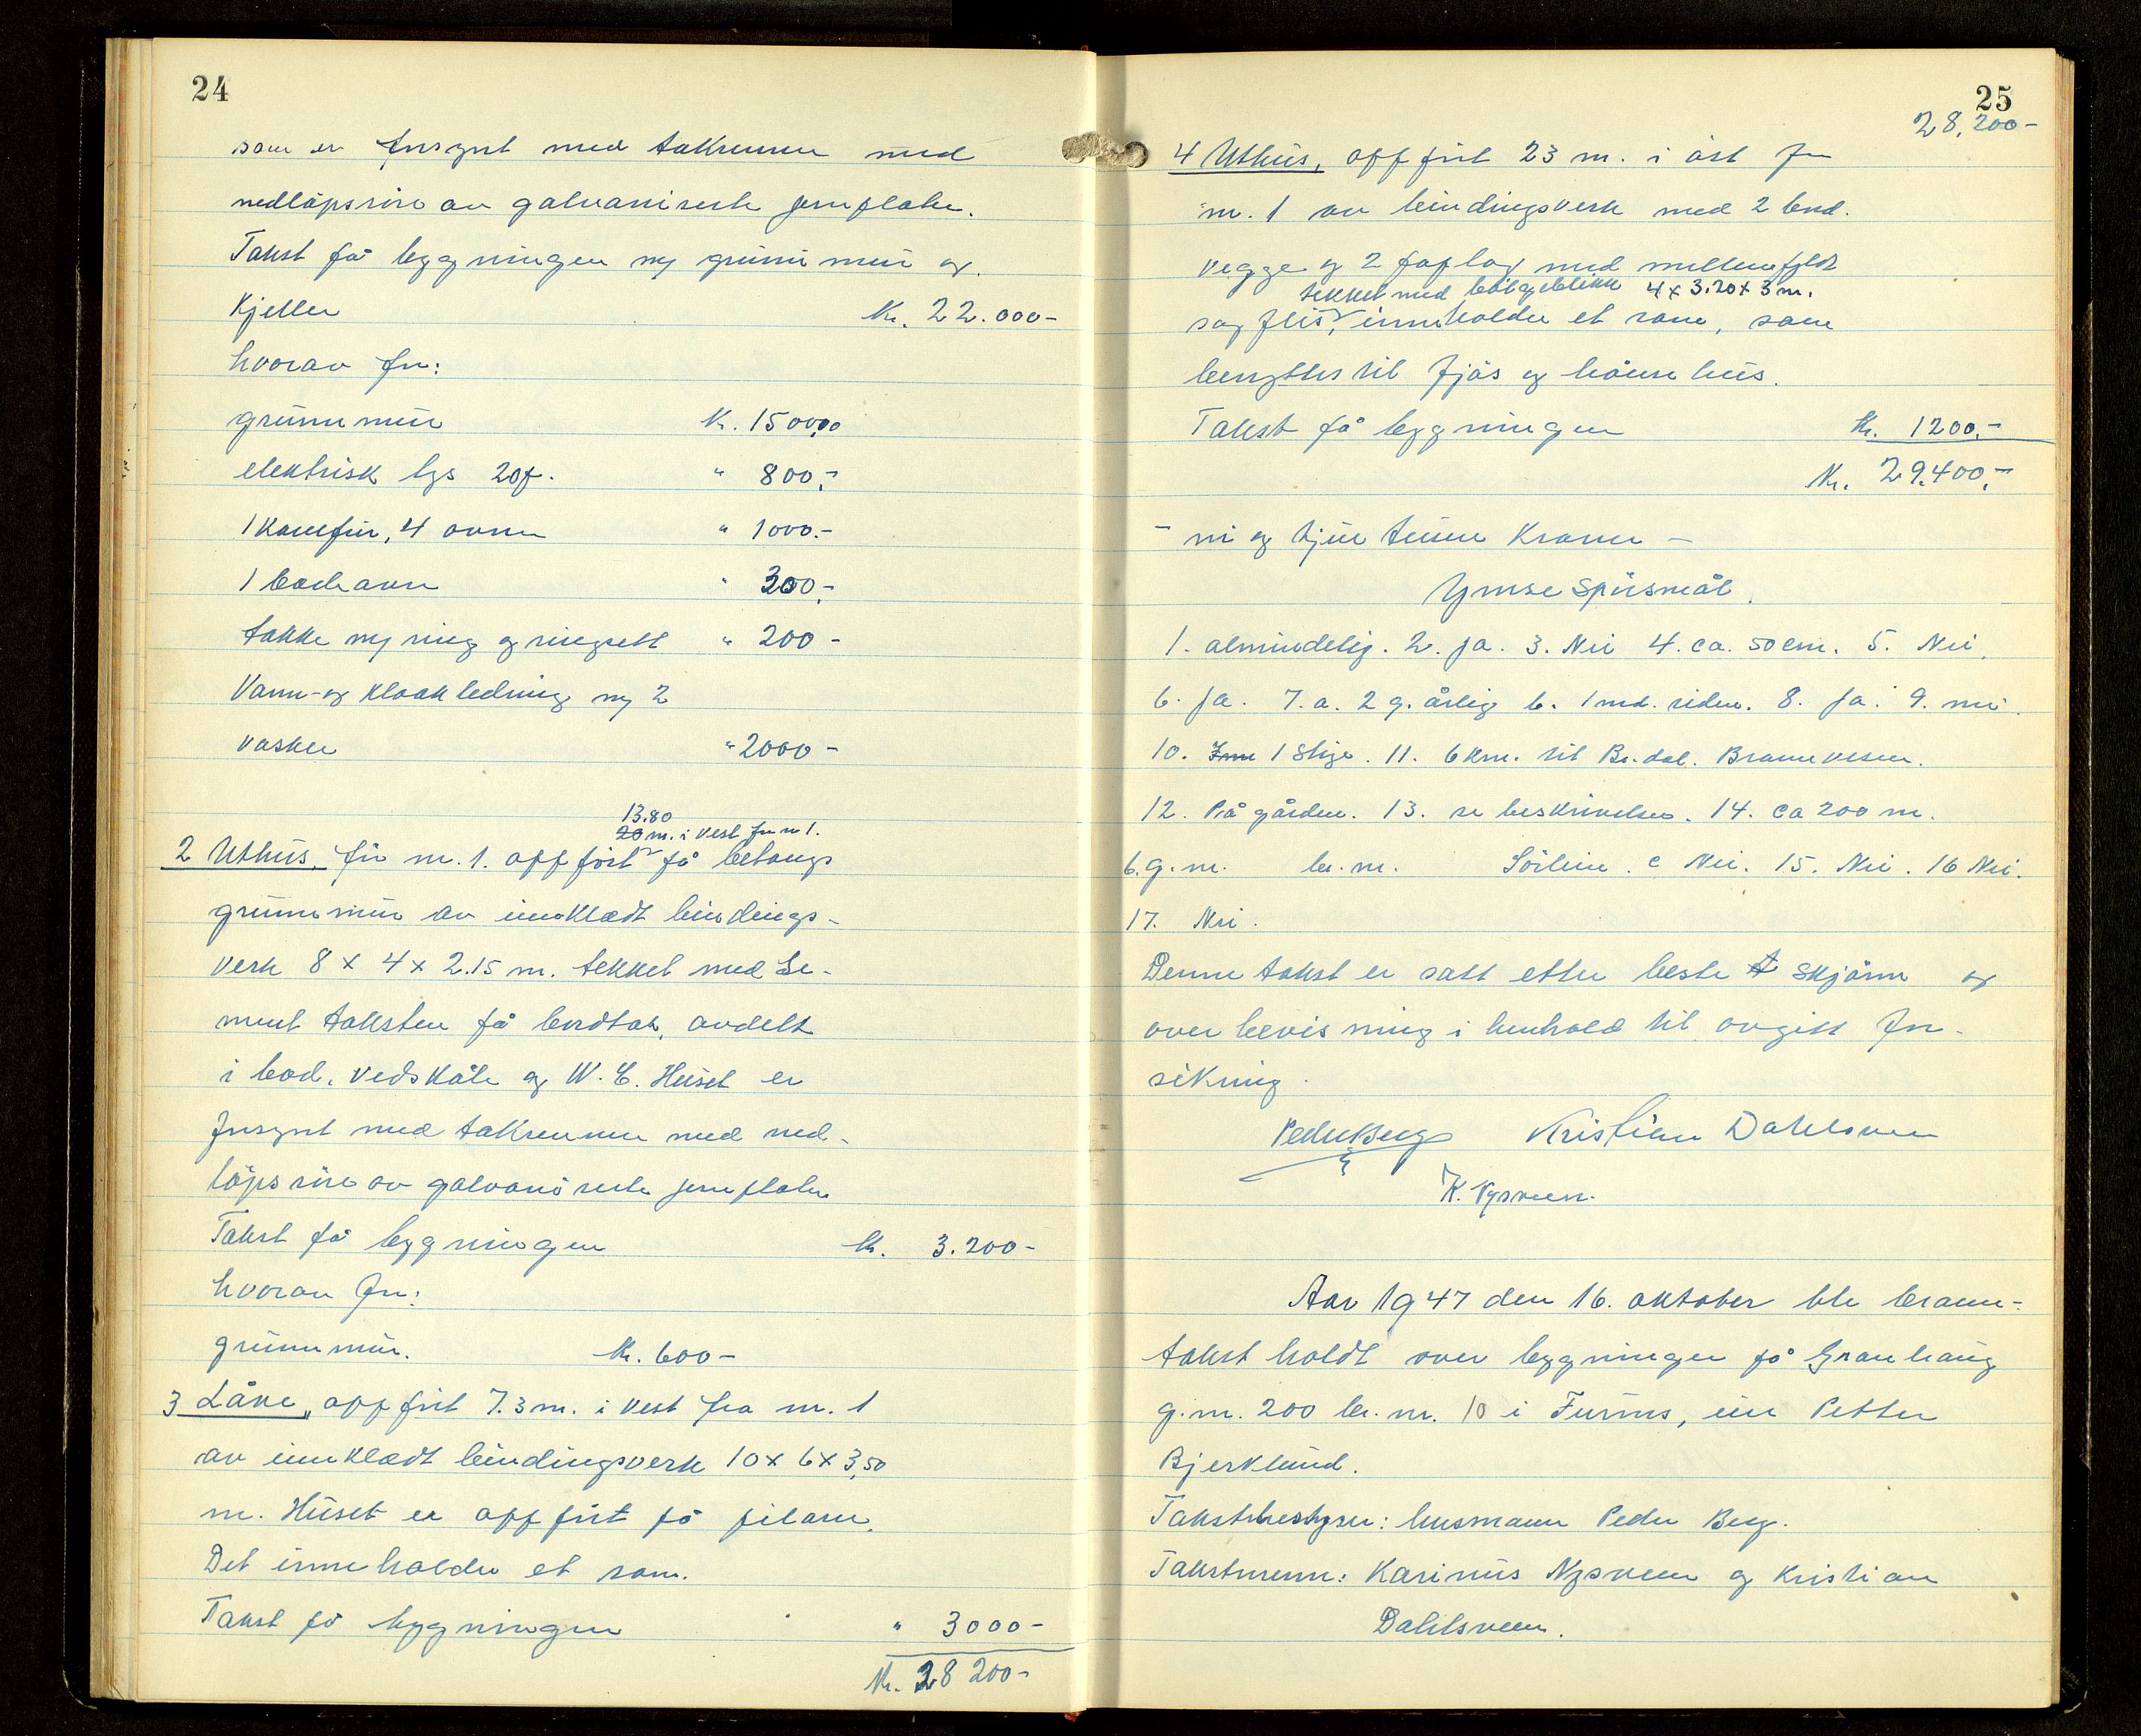 24
som er forsynt med takrenner med
nedløpsrør av galvaniserte jernplater.
Takst på bygningen og grunnmur og
Kjeller Kr. 22.000-
hvorav for:
grunnmur Kr. 1500,00
elektrisk lys 20 p. " 800,-
1 Komfur, 4 ovner " 1000.-
1 badeovn " 300,-
takke og ring og ringsett " 200-
Vann- og kloakledning og 2
vasker " 2000-
13.80
20 m. i vest fra nr 1.
2 Uthus, for nr. 1. oppført på betongs
grunnmur av innklædt bindings-
verk 8 x 4 x 2.15 m. tekket med Se-
ment taksten på bordtak, avdelt
i bod, vedskåle og W. C. Huset er
forsynt med takrenner med ned-
løpsrør av galvaniserte jernplater
Takst på bygningen Kr. 3.200-
hvorav for:
grunnmur. Kr. 600-
3 Låve, oppført 7.3 m. i vest fra nr. 1
av innklædt bindingsverk 10 x 6 x 3,50
m. Huset er oppført på pilarer.
Det inneholder et rom.
Takst på bygningen " 3000-
Kr. 28 200-
25
28,200-
4 Uthus, oppført 23 m. i øst for
nr. 1 av bindingsverk med 2 bord.
vegge og 2 paplag med mellemfyldt
tekket med bølgeblikk 4 x 3.20 x 3 m.
sagflis, inneholder et rom, som
benyttes til fjøs og hønsehus.
Takst på bygningen Kr. 1200,-
Kr. 29.400,-
- ni og tjue tusen Kroner -
Ymse Spørsmål.
1. almindelig. 2. ja. 3. Nei 4. ca. 50 cm. 5. Nei.
6. ja. 7. a. 2 g. årlig b. 1 md. siden. 8. ja. 9. nei.
10. 1 Stige. 11. 6 km. til Br.dal. Brannvesen.
12. På gården. 13. se beskrivelsen. 14. ca 200 m.
b. g. nr. br. nr. Sørlien. c Nei. 15. Nei. 16 Nei.
17. Nei.
Denne takst er satt etter beste skjønn og
overbevisning i henhold til avgitt for-
sikring.
Peder Berg Kristian Dahlsveen
K. Nysveen.
Aar 1947 den 16. oktober ble brann-
takst holdt over bygninger på Granhaug
g.nr. 200 br. nr. 10 i Furnes, eier Petter
Bjerklund.
Takstbestyrer: lensmann Peder Berg.
Takstmenn: Karinus Nysveen og Kristian
Dahlsveen.